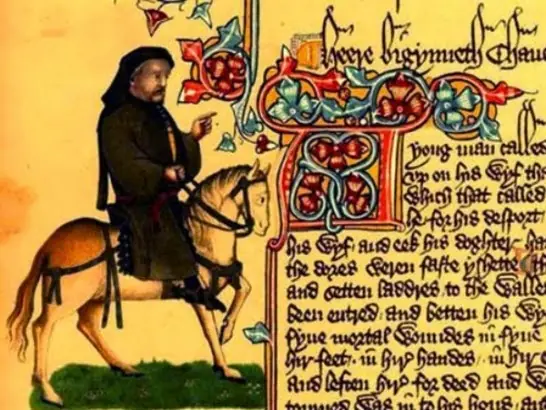 Heere bigynneth Chaue
A yong man called
vp on his wyf tha
which that called
he for his desport
his wyf and eek his doghter ha
the dores weren faste yshette
and setten laddres to the walle
been entred and betten his wy
fyue mortal woundes in fyue
hir feet in hir handes in hir
and leften hir for deed and we
tourned was in to his hous and